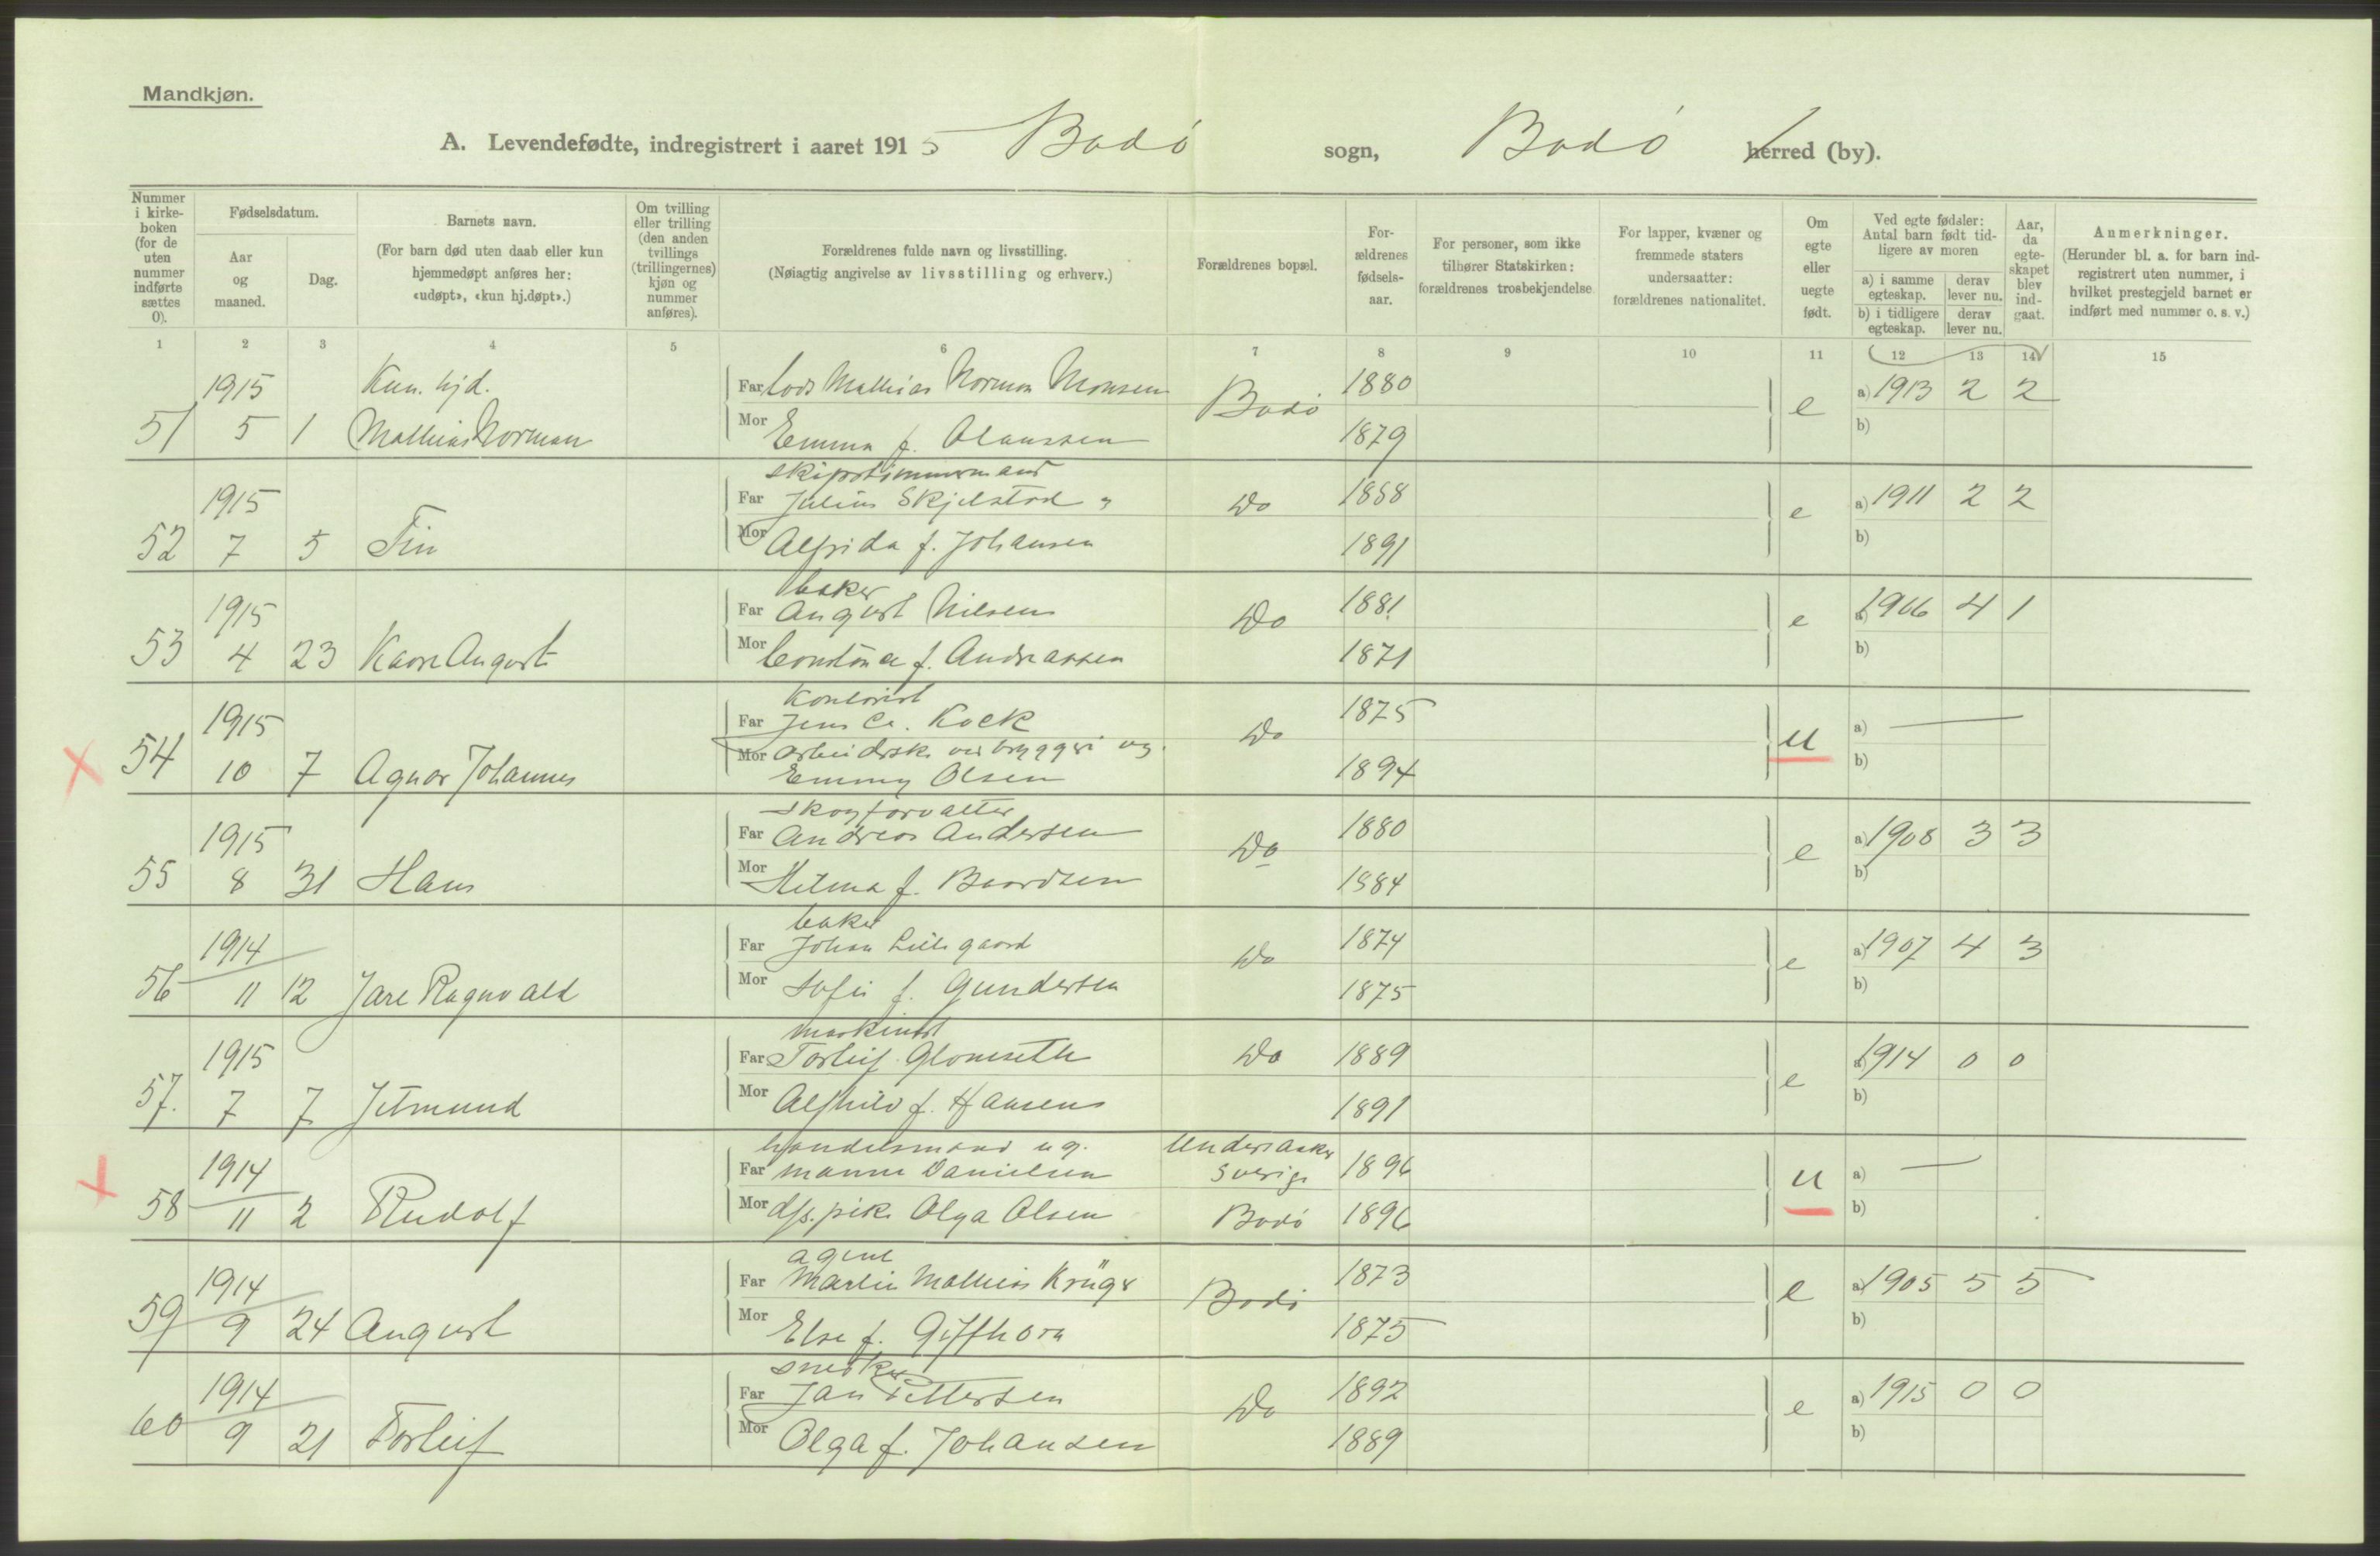 Mandkjøn.
A. Levendefødte, indregistrert i aaret 1915 Bodø sogn, Bodø herred (by).
Nummer i kirkeboken (for de uten nummer indførte sættes 0).
Fødselsdatum.
Aar og maaned.
Dag.
Barnets navn.
(For barn død uten daab eller kun hjemmedøpt anføres her: «udøpt», «kun hj.døpt».)
Om tvilling eller trilling (den anden tvillings (trillingernes) kjøn og nummer anføres).
Forældrenes fulde navn og livsstilling.
(Nøiagtig angivelse av livsstilling og erhverv.)
Forældrenes bopæl.
Forældrenes fødselsaar.
For personer, som ikke tilhører Statskirken: forældrenes trosbekjendelse
For lapper, kvæner og fremmede staters undersaatter: forældrenes nationalitet.
Om egte eller uegte født.
Ved egte fødsler: Antal barn født tidligere av moren
a) i samme egteskap. derav lever nu.
b) i tidligere egteskap. derav lever nu.
Aar, da egteskapet blev indgaat.
Anmerkninger.
(Herunder bl. a. for barn indregistrert uten nummer, i hvilket prestegjeld barnet er indført med nummer o. s. v.)
1 2 3 4 5 6 7 8 9 10 11 12 13 14 15
1915 Kun. hjd. Far Lods Mathias Norman Monsen Bodø 1880 e a) 1913 2 2
51 5 1 Mathias Norman Mor Emma f. Olaussen 1879 b)
skipstimmermand
1915 Far Julius Skjelstad Do 1888 e a) 1911 2 2
52 7 5 Fin Mor Alfrida f. Johansen 1891 b)
baker
1915 Far August Nilsen Do 1881 e a) 1906 4 1
53 4 23 Kaare August Mor Constance f. Andreassen 1871 b)
Kontorist
1915 Far Jens C. Koek Do 1875 u a) —
Mor arbeiderske ved bryggeri ug.
X 54 10 7 Agnar Johannes Emmy Olsen 1894 b)
skogforvalter
1915 Far Andreas Andersen Do 1880 e a) 1908 3 3
55 8 31 Hans Mor Hilma f. Baardsen 1884 b)
baker
1914 Far Johan Lillegaard Do 1874 e a) 1907 4 3
56 11 12 Jarl Ragnvald Mor Sofie f. Gundersen 1875 b)
maskinist
1915 Far Torleif Glomseth Do 1889 e a) 1914 0 0
57. 7 7 Jetmund Mor Alfhild f. Hansen 1891 b)
handelsmand ug. Undersaaker
X 1914 Far Manne Danielsen Sverige 1896 u a) —
58 11 2 Rudolf Mor tjs. pike Olga Olsen Bodø 1896 b)
agent
1914 Far Martin Mathias Krüger Bodø 1873 e a) 1905 5 5
59 9 24 August Mor Else f. Giffhorn 1875 b)
snedker
1914 Far Jan Pettersen Do 1892 e a) 1915 0 0
60 9 21 Torleif Mor Olga f. Johansen 1889 b)